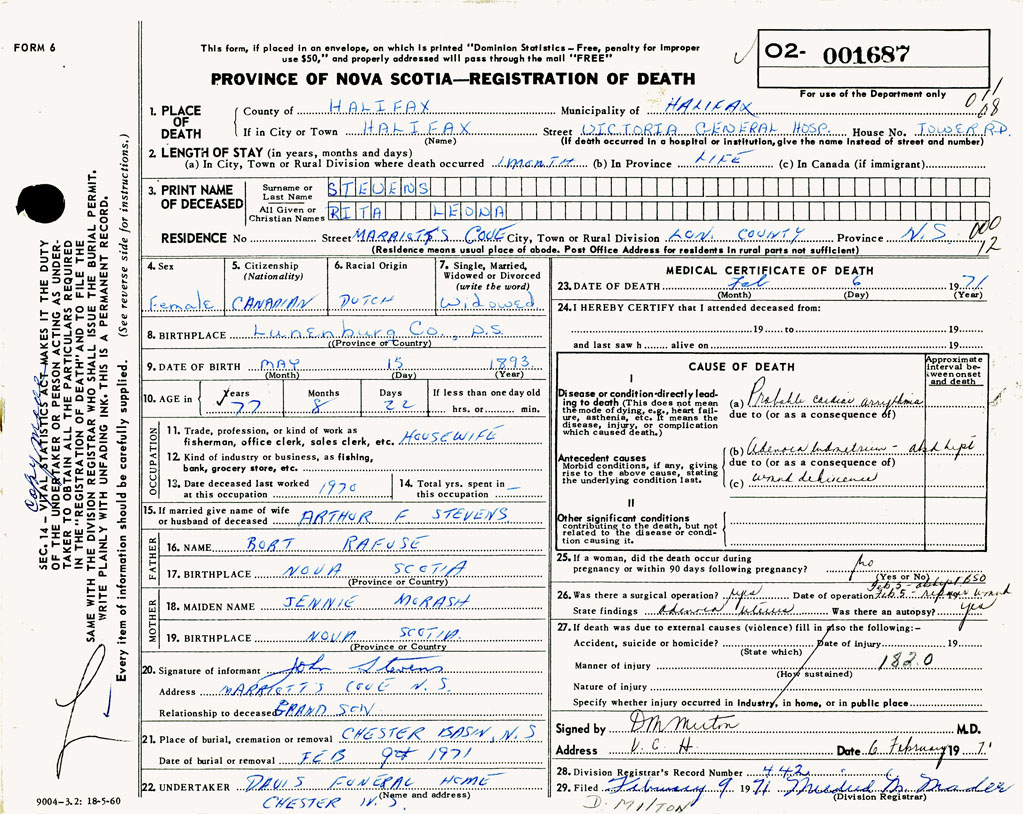 FORM 6
This form, if placed in an envelope, on which is printed "Dominion Statistics – Free, penalty for improper
use $50," and properly addressed will pass through the mail "FREE"
PROVINCE OF NOVA SCOTIA—REGISTRATION OF DEATH
02- 001687
For use of the Department only
011
08
1. PLACE OF DEATH
County of HALIFAX Municipality of HALIFAX
If in City or Town HALIFAX Street VICTORIA GENERAL HOSP. House No. TOWER RD.
(Name) (If death occurred in a hospital or institution, give the name instead of street and number)
2. LENGTH OF STAY (in years, months and days)
(a) In City, Town or Rural Division where death occurred 1 MONTH (b) In Province LIFE (c) In Canada (if immigrant)
3. PRINT NAME OF DECEASED
Surname or Last Name STEVENS
All Given or Christian Names RITA LEONA
RESIDENCE No Street MARRIOTT'S COVE City, Town or Rural Division LUN. COUNTY Province N.S.
000
12
(Residence means usual place of abode. Post Office Address for residents in rural parts not sufficient)
4. Sex Female
5. Citizenship (Nationality) CANADIAN
6. Racial Origin DUTCH
7. Single, Married, Widowed or Divorced (write the word) Widowed
8. BIRTHPLACE Lunenburg Co., N.S.
(Province or Country)
9. DATE OF BIRTH MAY 15 1893
(Month) (Day) (Year)
10. AGE in Years 77 Months 8 Days 22 If less than one day old hrs. or min.
OCCUPATION
11. Trade, profession, or kind of work as
fisherman, office clerk, sales clerk, etc. HOUSEWIFE
12. Kind of industry or business, as fishing,
bank, grocery store, etc.
13. Date deceased last worked at this occupation 1970
14. Total yrs. spent in this occupation —
15. If married give name of wife
or husband of deceased ARTHUR F STEVENS
FATHER
16. NAME BORT RAFUSE
17. BIRTHPLACE NOVA SCOTIA
(Province or Country)
MOTHER
18. MAIDEN NAME JENNIE MORASH
19. BIRTHPLACE NOVA SCOTIA
(Province or Country
20. Signature of informant John Stevens
Address MARRIOTT'S COVE N.S.
Relationship to deceased GRAND SON
21. Place of burial, cremation or removal CHESTER BASIN, N.S
Date of burial or removal FEB 9th 1971
22. UNDERTAKER DAVIS FUNERAL HOME
(Name and address)
CHESTER N.S.
MEDICAL CERTIFICATE OF DEATH
23. DATE OF DEATH Feb 6 1971
(Month) (Day) (Year)
24. I HEREBY CERTIFY that I attended deceased from:
19 to 19
and last saw h alive on 19
CAUSE OF DEATH
Approximate interval between onset and death
I
Disease or condition directly leading to death (This does not mean the mode of dying, e.g., heart failure, asthenia, etc. It means the disease, injury, or complication which caused death.)
(a) Probable cardiac arrythmia
due to (or as a consequence of)
Antecedent causes
Morbid conditions, if any, giving rise to the above cause, stating the underlying condition last.
(b) Adenoca endometrium - abd hyst
due to (or as a consequence of)
(c) wound dehiscence
II
Other significant conditions
contributing to the death, but not related to the disease or condition causing it.
25. If a woman, did the death occur during
pregnancy or within 90 days following pregnancy? no
(Yes or No)
26. Was there a surgical operation? yes Date of operation Feb 5 - repair wound
State findings adenoca uterus Was there an autopsy? yes
27. If death was due to external causes (violence) fill in also the following:-
Accident, suicide or homicide? Date of injury 19
(State which)
Manner of injury 1820
(How sustained)
Nature of injury
Specify whether injury occurred in industry, in home, or in public place
Signed by DM Milton M.D.
Address V.G.H. Date 6 February 1971
28. Division Registrar's Record Number 442
29. Filed February 9 1971 M. Mader
(Division Registrar)
D. MILTON
SEC. 14 – VITAL STATISTICS ACT MAKES IT THE DUTY
OF THE UNDERTAKER OR PERSON ACTING AS UNDER-
TAKER TO OBTAIN ALL THE PARTICULARS REQUIRED
IN THE "REGISTRATION OF DEATH" AND TO FILE THE
SAME WITH THE DIVISION REGISTRAR WHO SHALL ISSUE THE BURIAL PERMIT.
WRITE PLAINLY WITH UNFADING INK. THIS IS A PERMANENT RECORD.
Every item of information should be carefully supplied. (See reverse side for instructions.)
9004–3.2: 18-5-60